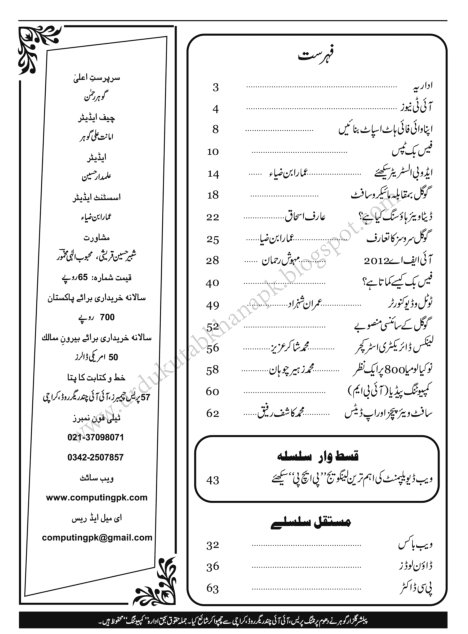 فہرست
اداریہ 3
آئی ٹی نیوز 4
اپنا وائی فائی ہاٹ اسپاٹ بنائیں 8
فیس بک ٹپس 10
ایڈوبی السٹریٹر سیکھئے عمار ابن ضیاء 14
گوگل بمقابلہ مائیکروسافٹ 18
ڈیٹا ویئر ہاؤسنگ کیا ہے؟ عارف اسحاق 22
گوگل سروسز کا تعارف عمار ابن ضیا 25
آئی ایف اے 2012 مہوش رحمان 28
فیس بک کیسے کماتا ہے؟ 40
ٹوٹل ویڈیو کنورٹر عمران شہزاد 49
گوگل کے سائنسی منصوبے 52
لینکس ڈائریکٹری اسٹرکچر محمد شاکر عزیز 56
نوکیا لومیا 800 پر ایک نظر محمد زہیر چوہان 58
کمپیوٹنگ پیڈیا (آئی بی ایم) 60
سافٹ ویئر پیچز اور اپ ڈیٹس محمد کاشف رفیق 62
قسط وار سلسلہ
ویب ڈیویلپمنٹ کی اہم ترین لینگویج ''پی ایچ پی'' سیکھئے 43
مستقل سلسلے
ویب باکس 32
ڈاؤن لوڈز 36
پی سی ڈاکٹر 63
سرپرست اعلیٰ
گوہر رحمٰن
چیف ایڈیٹر
امانت علی گوہر
ایڈیٹر
علمدار حسین
اسسٹنٹ ایڈیٹر
عمار ابن ضیاء
مشاورت
شبیر حسین قریشی، محبوب الٰہی مخمور
قیمت شمارہ: 65 روپے
سالانہ خریداری برائے پاکستان
700 روپے
سالانہ خریداری برائے بیرون ممالک
50 امریکی ڈالرز
خط و کتابت کا پتا
57 پریس چیمبرز، آئی آئی چندریگر روڈ، کراچی
ٹیلی فون نمبرز
021-37098071
0342-2507857
ویب سائٹ
www.computingpk.com
ای میل ایڈریس
computingpk@gmail.com
پبلشر گلزار گوہر نے دھوم پرنٹنگ پریس، آئی آئی چندریگر روڈ، کراچی سے چھپوا کر شائع کیا۔ جملہ حقوق بحق ادارہ ''کمپیوٹنگ'' محفوظ ہیں۔
www.urdukutabkhanapk.blogspot.com